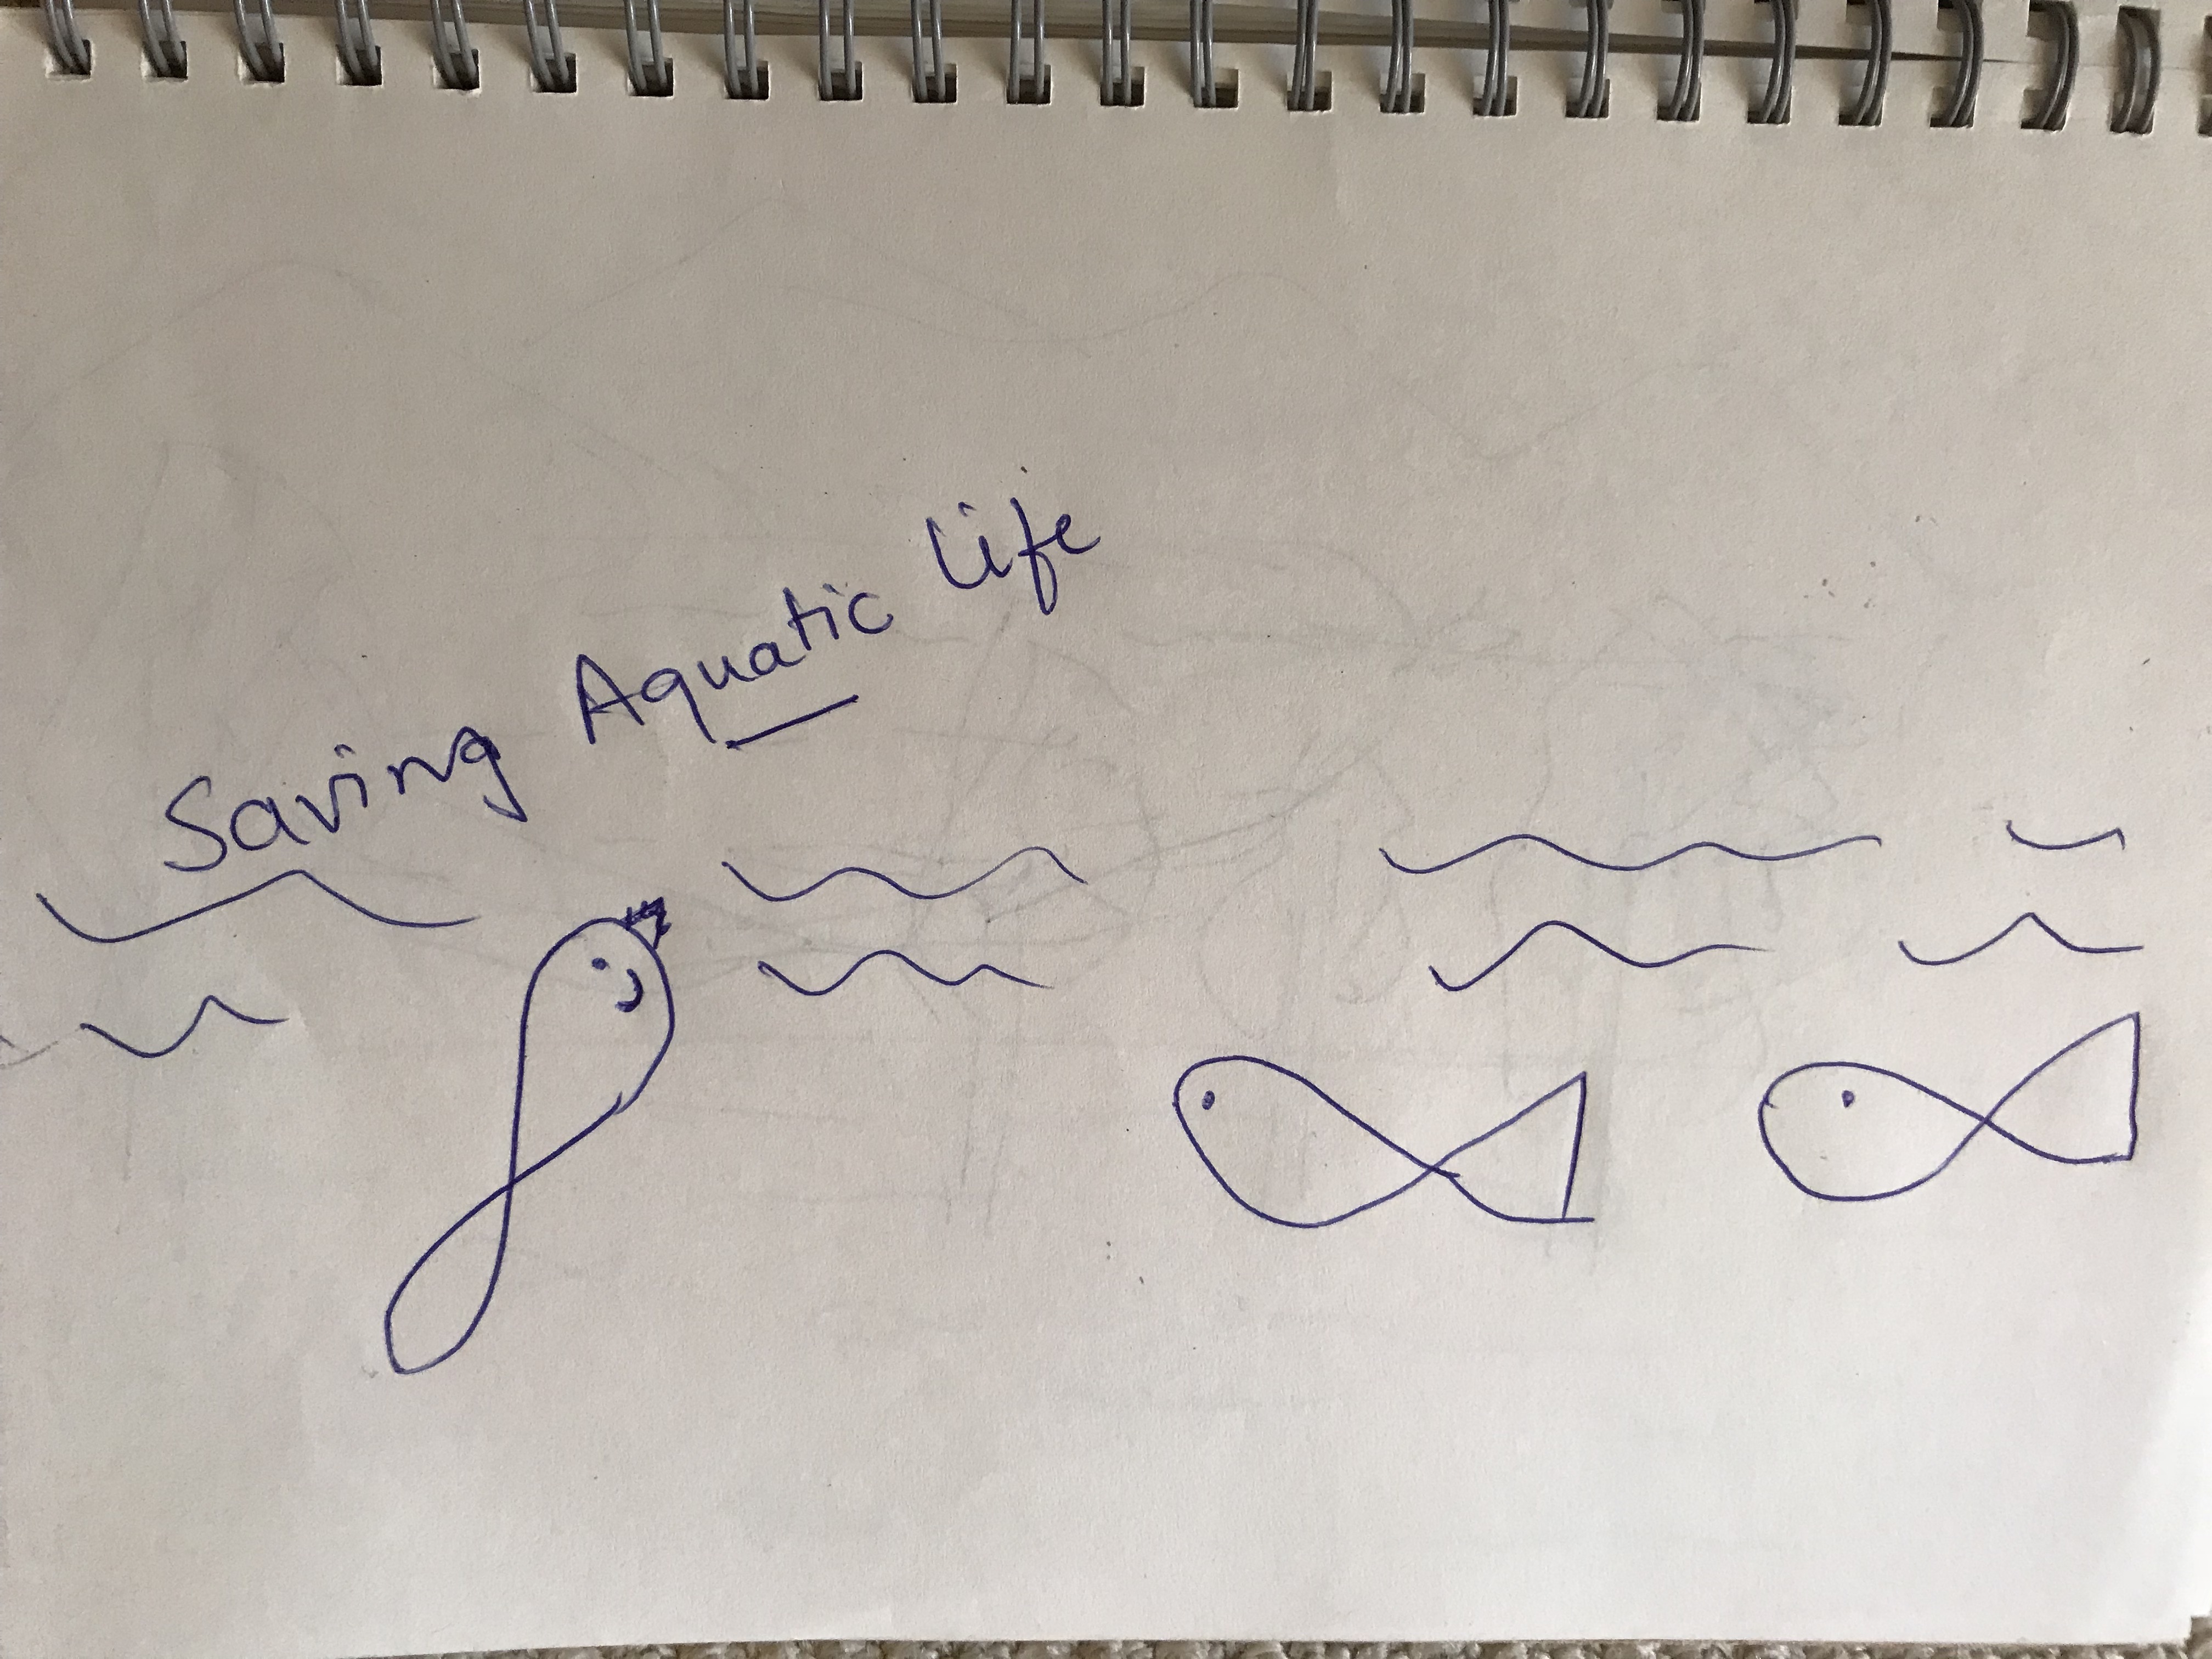 Saving Aquatic Life